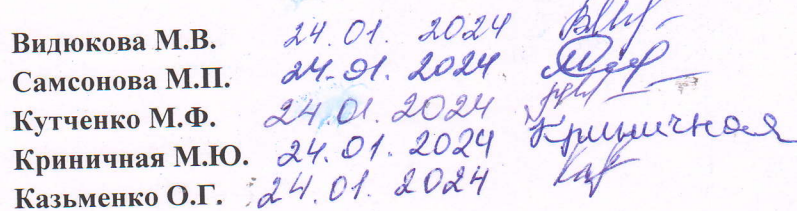 Видюкова М.В. 24.01. 2024
Самсонова М.П. 24.01. 2024
Кутченко М.Ф. 24.01. 2024
Криничная М.Ю. 24.01. 2024 Криничная
Казьменко О.Г. 24.01. 2024